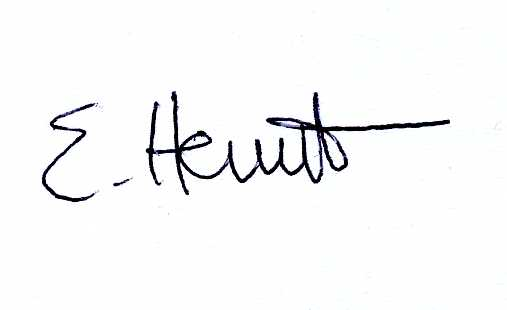 E. Hewitt